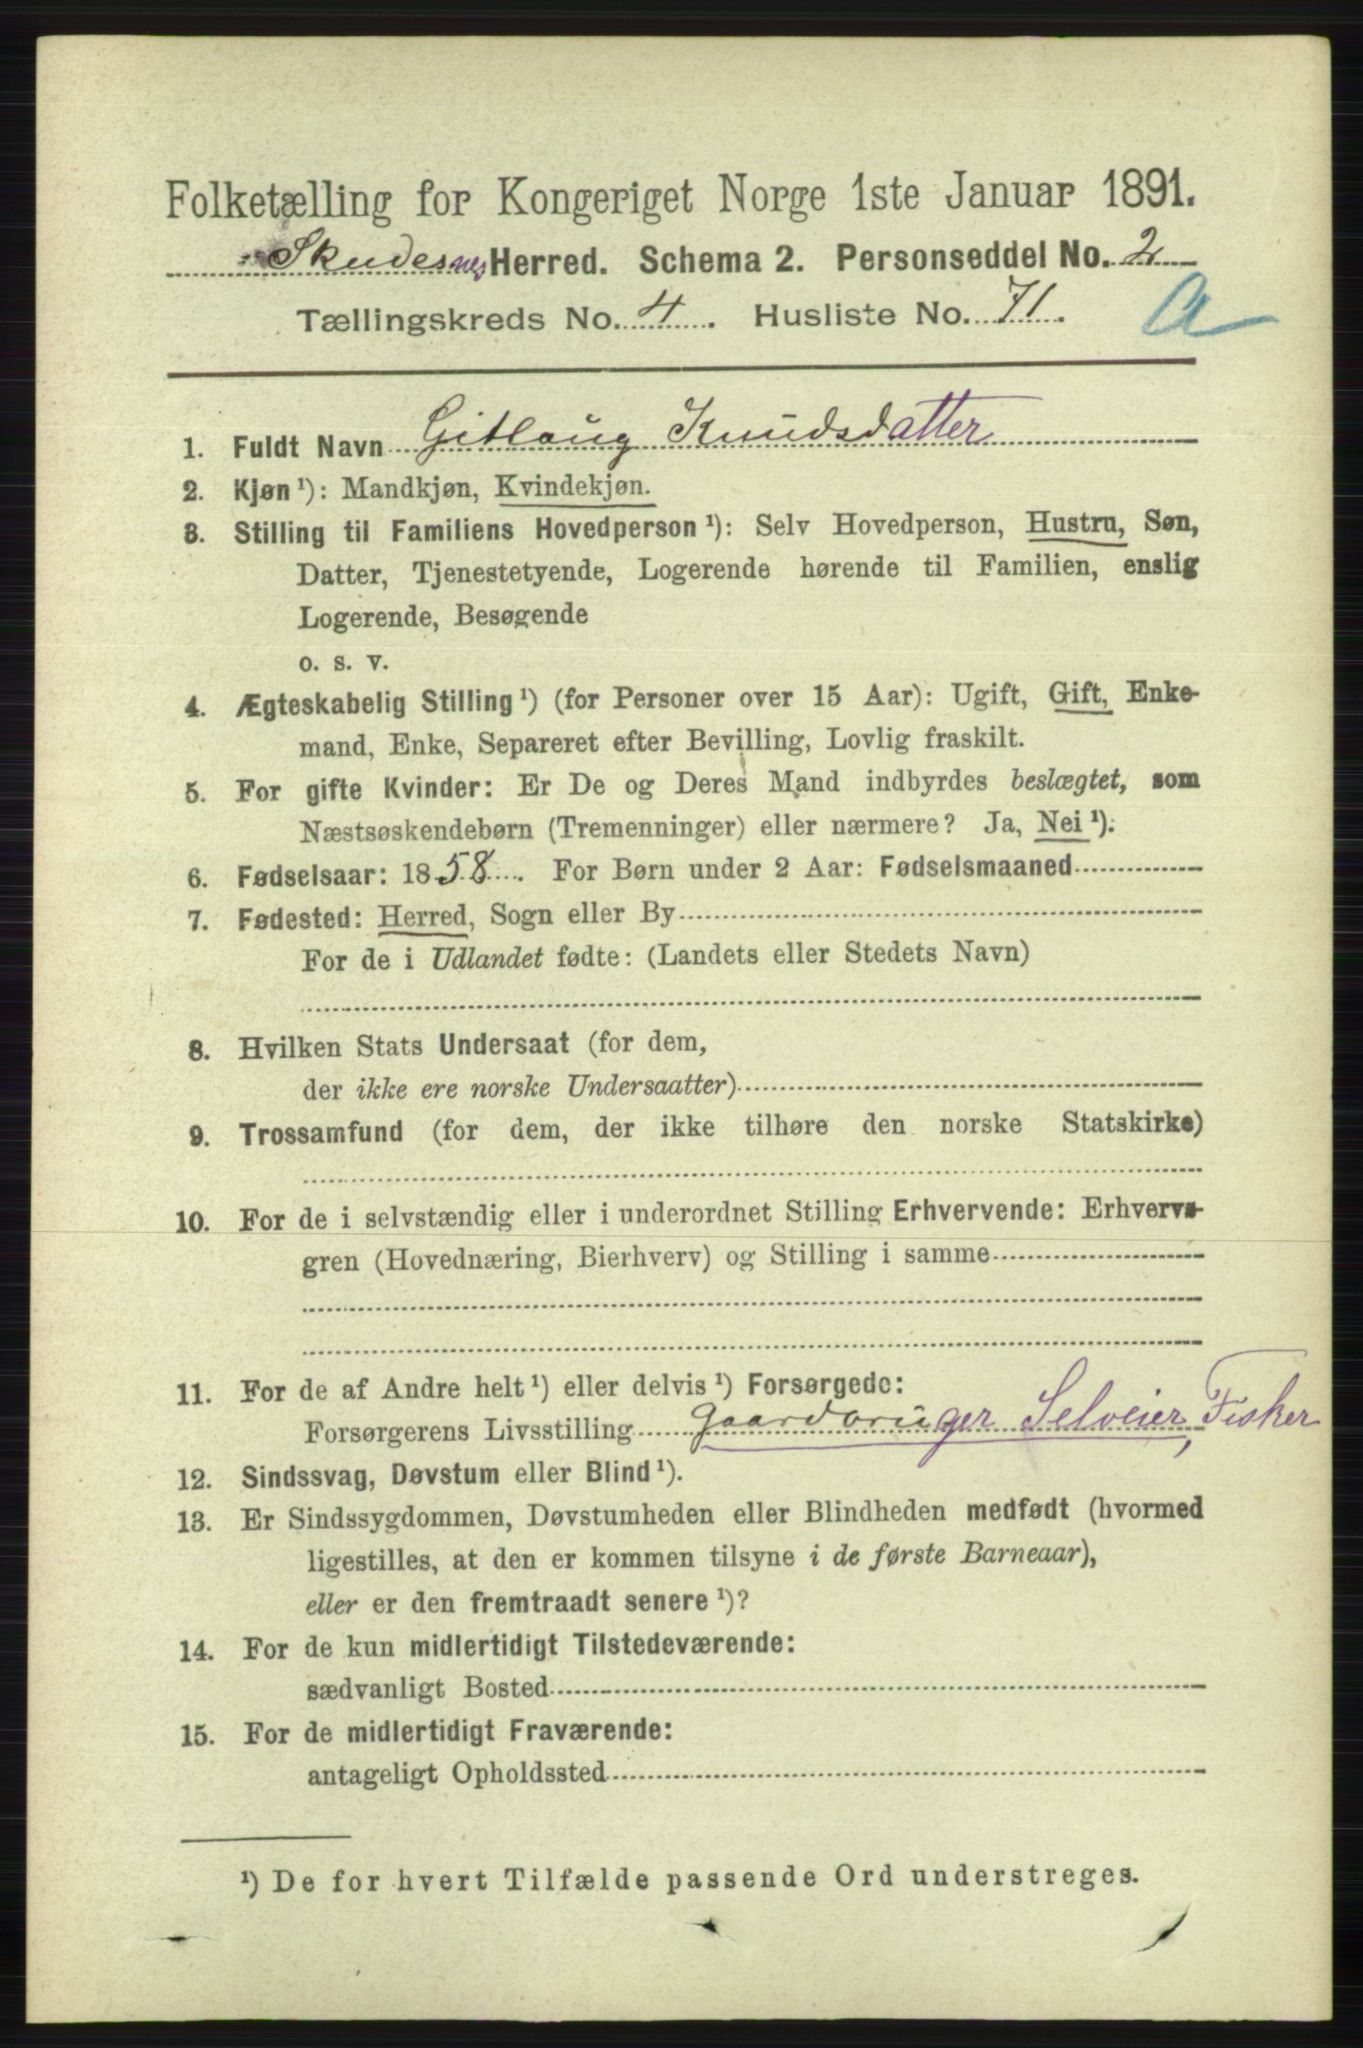 Folketælling for Kongeriget Norge 1ste Januar 1891.
Skudesnes Herred. Schema 2. Personseddel No. 2
Tællingskreds No. 4. Husliste No. 71.
A
1. Fuldt Navn Gitlaug Knudsdatter
2. Kjøn ¹): Mandkjøn, Kvindekjøn.
3. Stilling til Familiens Hovedperson ¹): Selv Hovedperson, Hustru, Søn,
Datter, Tjenestetyende, Logerende hørende til Familien, enslig
Logerende, Besøgende
o. s. v.
4. Ægteskabelig Stilling ¹) (for Personer over 15 Aar): Ugift, Gift, Enke-
mand, Enke, Separeret efter Bevilling, Lovlig fraskilt.
5. For gifte Kvinder: Er De og Deres Mand indbyrdes beslægtet, som
Næstsøskendebørn (Tremenninger) eller nærmere? Ja, Nei ¹).
6. Fødselsaar: 1858. For Børn under 2 Aar: Fødselsmaaned
7. Fødested: Herred, Sogn eller By
For de i Udlandet fødte: (Landets eller Stedets Navn)
8. Hvilken Stats Undersaat (for dem,
der ikke ere norske Undersaatter)
9. Trossamfund (for dem, der ikke tilhøre den norske Statskirke)
10. For de i selvstændig eller i underordnet Stilling Erhvervende: Erhvervs-
gren (Hovednæring, Bierhverv) og Stilling i samme
11. For de af Andre helt ¹) eller delvis ¹) Forsørgede:
Forsørgerens Livsstilling Gaardbruger Selveier, Fisker
12. Sindssvag, Døvstum eller Blind ¹).
13. Er Sindssygdommen, Døvstumheden eller Blindheden medfødt (hvormed
ligestilles, at den er kommen tilsyne i de første Barneaar),
eller er den fremtraadt senere ¹)?
14. For de kun midlertidigt Tilstedeværende:
sædvanligt Bosted
15. For de midlertidigt Fraværende:
antageligt Opholdssted
¹) De for hvert Tilfælde passende Ord understreges.